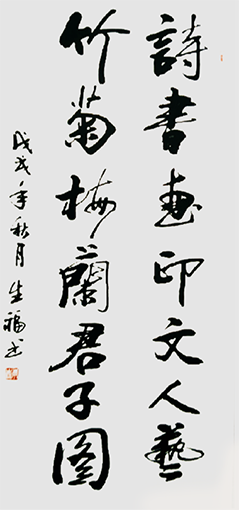 詩書畫印文人藝
竹菊梅蘭君子圖
戊戌年秋月生福书